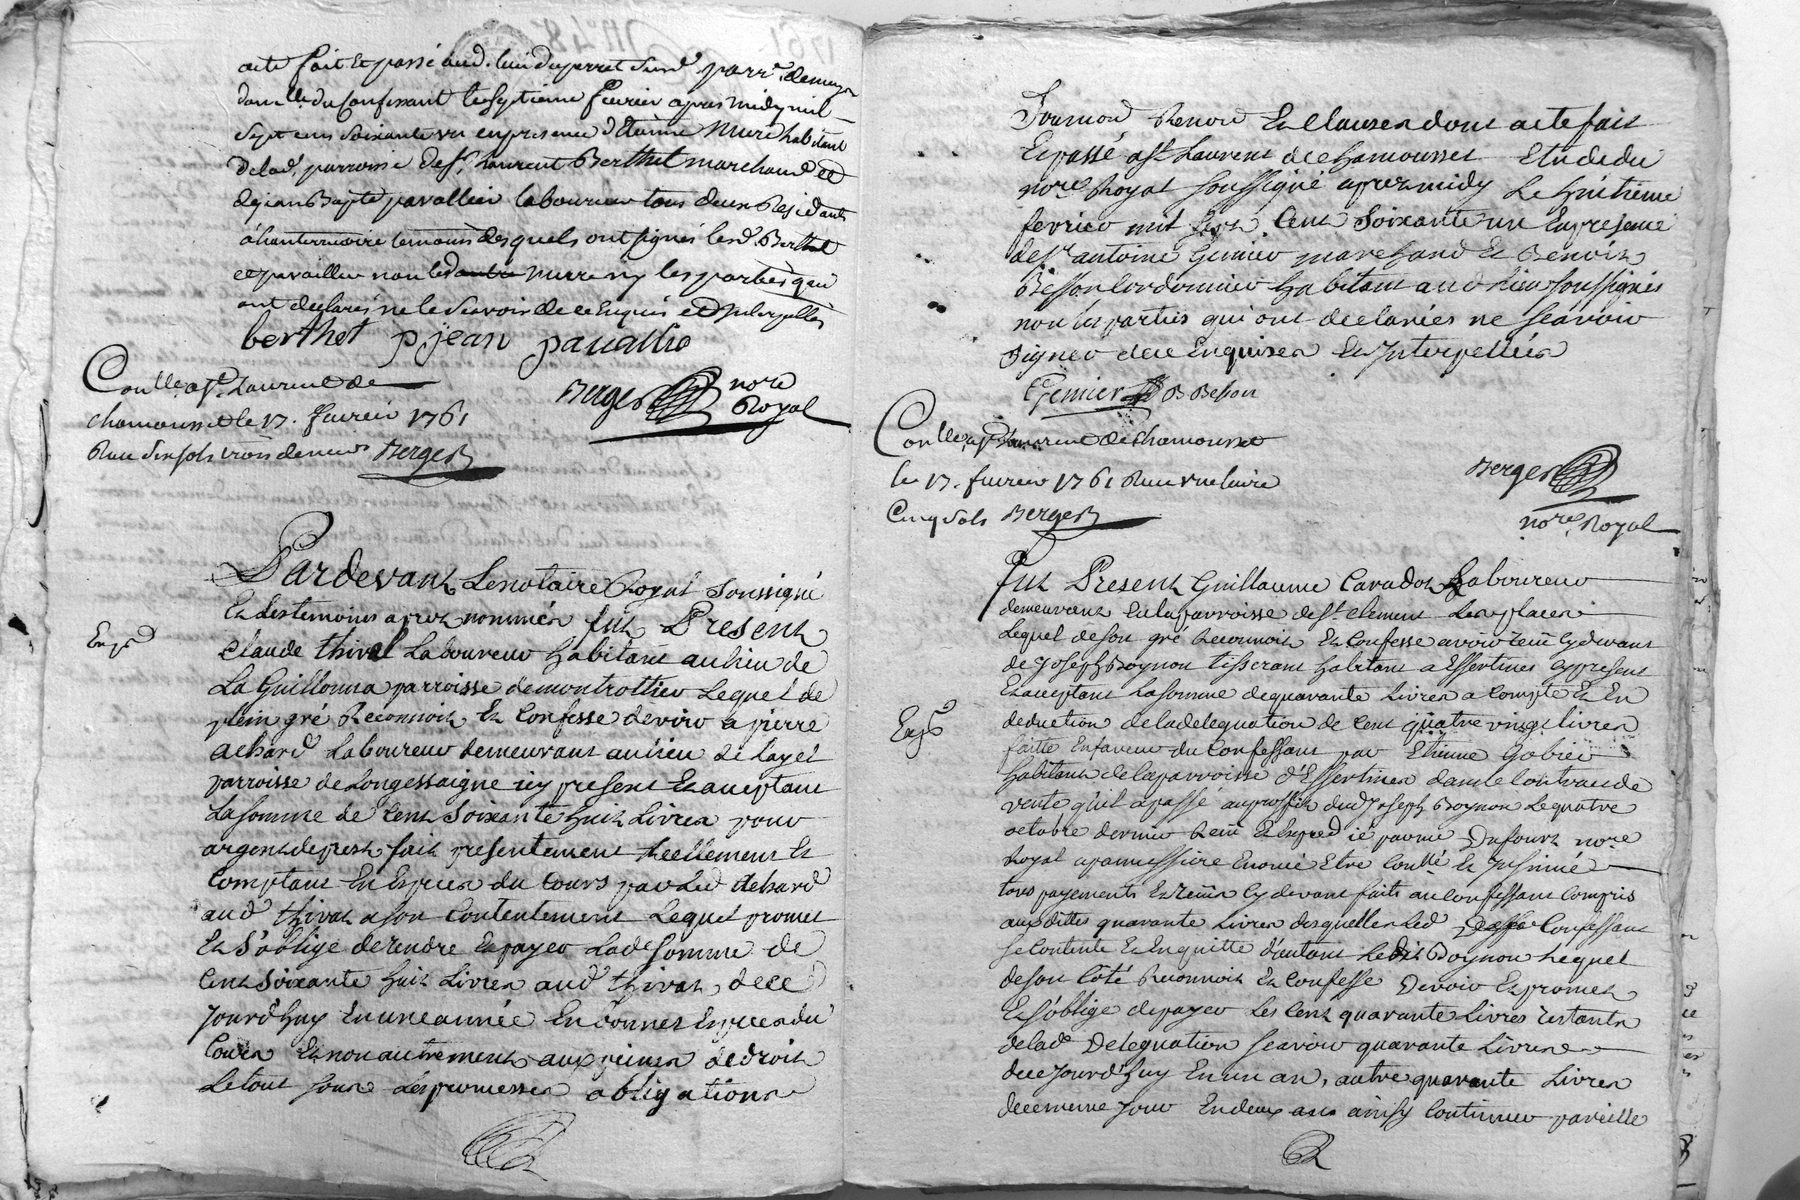 acte fait et passé aud. lieu du perret susd. parr. demeyr
dans le du Confessant le septieme fevrier apres midy mil
sept cens soixante un en presence d'Etienne Mure habitant
de lad. parroisse de St. Laurent Berthet marchand et
de jean Bapte pavallier laboureur tous deux Residants
á hauterivoire temoins desquels ont signés lesd. Berthet
et pavallier non led mure ny les parties qui
ont declarés ne le scavoir de ce Enquis et Interpellés
berthet pjean pavallie
Berger nore
Royal
Conllé. a St. Laurent de
chamousset le 17. fevrier 1761
Reçu six sols trois deniers Berger
Pardevant Le notaire Royal Soussigné
Et Les temoins apres nommés fut Present
Exp.d
Claude thival Laboureur habitant au lieu de
La Guillonna parroisse de montrottier Lequel de
plein gré Reconnoit Et Confesse devoir a pierre
achard Laboureur demeurant au lieu de Layet
parroisse de Longessaigne icy present Et acceptant
La somme de Cent Soixante huit Livres pour
argent de prest fait presentement Reellement Et
Comptant En Especes du Cours par Led achard
aud thival a son Contentement Lequel promet
Et S'oblige de rendre Et payer Lade somme de
Cent Soixante huit Livres aud thival, de ce
Jourd'huy En une année En bonnes Especes du
Cours Et non autrement aux peines de droit
Le tout sous Les promesses obligations
Soumions Renon Et Clauses dont acte fait
Et passé a St. Laurent de Chamousset Etude du
nore Royal soussigné apres midy Le huitieme
fevrier mil sept Cent Soixante un En presence
de sr. antoine Genier marchand Et Benoit
Besson Cordonnier habitans aud lieu soussignés
non les parties qui ont declarées ne scavoir
signer de ce Enquises Et Interpellées
Genier B Besson
Conllé. a St. Laurent de Chamousset
le 17. fevrier 1761 Reçu une livre
Cinq sols Berger
Berger
nore. Royal
Fut Present Guillaume Caradot Laboureur
demeurant En la parroisse de St. Clement Les places
Lequel de son gré Reconnoit Et Confesse avoir reçu Cy devant
de Joseph Boynon tisserant habitant a Essertines cy present
Et acceptant La somme de quarante Livres a Compte Et En
deduction de la delegation de Cent quatre vingt livres
Exp.d
faitte En faveur du Confessant par Etienne Gobier
habitant de la parroisse d'Essertines dans le Contract de
vente qu'il a passé au proffit dud Joseph Boynon Le quatre
octobre dernier receu Et Exped ié par me Dufour nore
Royal a panissiere Enoncé Etre Conllé Et Insinué
tous payements Et recus Cy devant faits au Confessant Compris
aux dittes quarante Livres desquelles Led Confessant
se Contente Et En quitte d'autant Ledit Boynon Lequel
de son Coté Reconnoit Et Confesse Devoir Et promet
Et S'oblige de payer Les Cent quarante Livres restants
de lade Delegation scavoir quarante Livres
de ce Jourd'huy En un an, autre quarante Livres
de ce meme jour En deux ans ainsy Continuer pareille